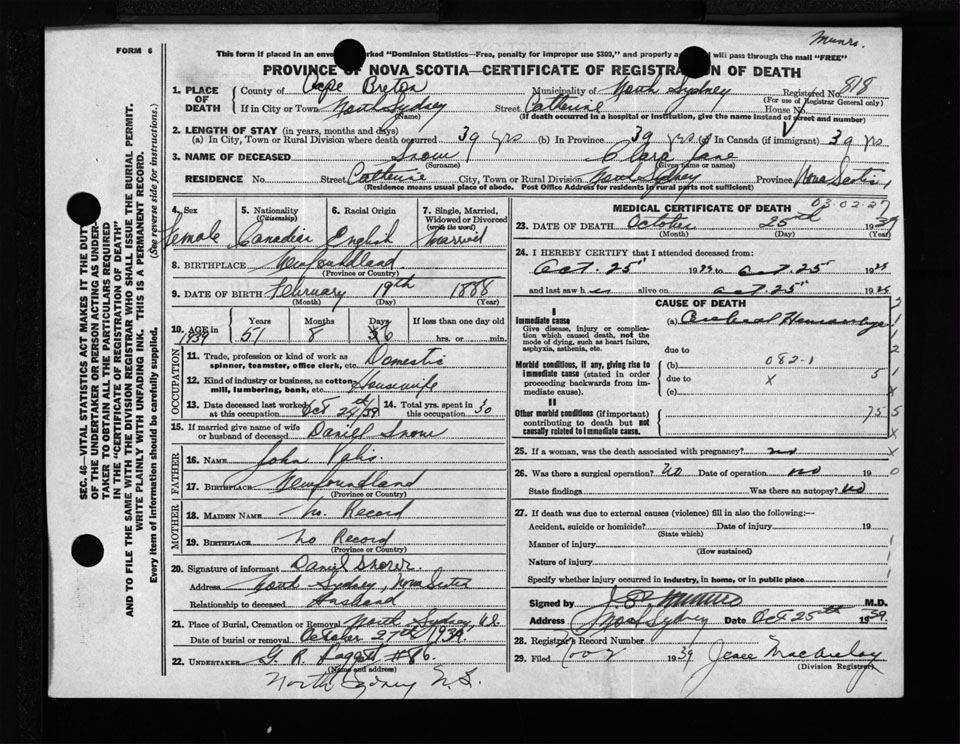 Munro.
FORM 6
This form if placed in an envelope marked "Dominion Statistics—Free, penalty for improper use $300," and properly will pass through the mail "FREE"
PROVINCE OF NOVA SCOTIA—CERTIFICATE OF REGISTRATION OF DEATH
1. PLACE OF DEATH
County of Cape Breton Municipality of North Sydney Registered No. 818
(For use of Registrar General only)
If in City or Town North Sydney Street Catherine House No.
(Name) (If death occurred in a hospital or institution, give the name instead of street and number)
2. LENGTH OF STAY (in years, months and days)
(a) In City, Town or Rural Division where death occurred 39 yrs (b) In Province 39 yrs (c) In Canada (if immigrant) 39 yrs
3. NAME OF DECEASED Snow Clara Jane
(Surname) (Given name or names)
RESIDENCE No. Street Catherine City, Town or Rural Division North Sydney Province Nova Scotia
(Residence means usual place of abode. Post Office Address for residents in rural parts not sufficient)
4. Sex Female
5. Nationality (Citizenship) Canadian
6. Racial Origin English
7. Single, Married, Widowed or Divorced (write the word) Married
8. BIRTHPLACE Newfoundland
(Province or Country)
9. DATE OF BIRTH February 19th 1888
(Month) (Day) (Year)
10. AGE in Years Months Days If less than one day
1939 51 8 6 hrs. or min.
OCCUPATION
11. Trade, profession or kind of work as spinner, teamster, office clerk, etc. Domestic
12. Kind of industry or business, as cotton mill, lumbering, bank, etc. Housewife
13. Date deceased last worked at this occupation Oct 24th/39
14. Total yrs. spent in this occupation 30
15. If married give name of wife or husband of deceased Daniel Snow
FATHER
16. NAME John
17. BIRTHPLACE Newfoundland
(Province or Country)
MOTHER
18. MAIDEN NAME No. Record
19. BIRTHPLACE No Record
(Province or Country)
20. Signature of informant Daniel Snow
Address North Sydney, Nova Scotia
Relationship to deceased Husband
21. Place of Burial, Cremation or Removal North Sydney, N.S.
Date of burial or removal October 27th 1939.
22. UNDERTAKER G. R. #86.
(Name and address)
North Sydney N.S.
03.02.27
MEDICAL CERTIFICATE OF DEATH
23. DATE OF DEATH October 25th 1939
(Month) (Day) (Year)
24. I HEREBY CERTIFY that I attended deceased from
Oct. 25" 19 to Oct. 25" 19
and last saw h er alive on Oct. 25" 19
CAUSE OF DEATH
I
Immediate cause
Give disease, injury or complication which caused death, not the mode of dying, such as heart failure, asphyxia, asthenia, etc.
(a) Cerebral Hemorrhage
due to
Morbid conditions, if any, giving rise to immediate cause (stated in order proceeding backwards from immediate cause).
(b) 082-1
due to X 5
(c)
II
Other morbid conditions (if important) contributing to death but not causally related to immediate cause. 75
25. If a woman, was the death associated with pregnancy? no
26. Was there a surgical operation? No Date of operation no 19
State findings Was there an autopsy? no
27. If death was due to external causes (violence) fill in also the following:—
Accident, suicide or homicide? Date of injury 19
(State which)
Manner of injury
(How sustained)
Nature of injury
Specify whether injury occurred in industry, in home, or in public place
Signed by Munro M.D.
Address North Sydney Date Oct 25th 1939.
28. Registrar's Record Number
29. Filed 1939
(Division Registrar)
SEC. 46—VITAL STATISTICS ACT MAKES IT THE DUTY OF THE UNDERTAKER OR PERSON ACTING AS UNDERTAKER TO OBTAIN ALL THE PARTICULARS REQUIRED IN THE "CERTIFICATE OF REGISTRATION OF DEATH" AND TO FILE THE SAME WITH THE DIVISION REGISTRAR WHO SHALL ISSUE THE BURIAL PERMIT.
WRITE PLAINLY WITH UNFADING INK. THIS IS A PERMANENT RECORD.
Every item of information should be carefully supplied. (See reverse side for instructions.)